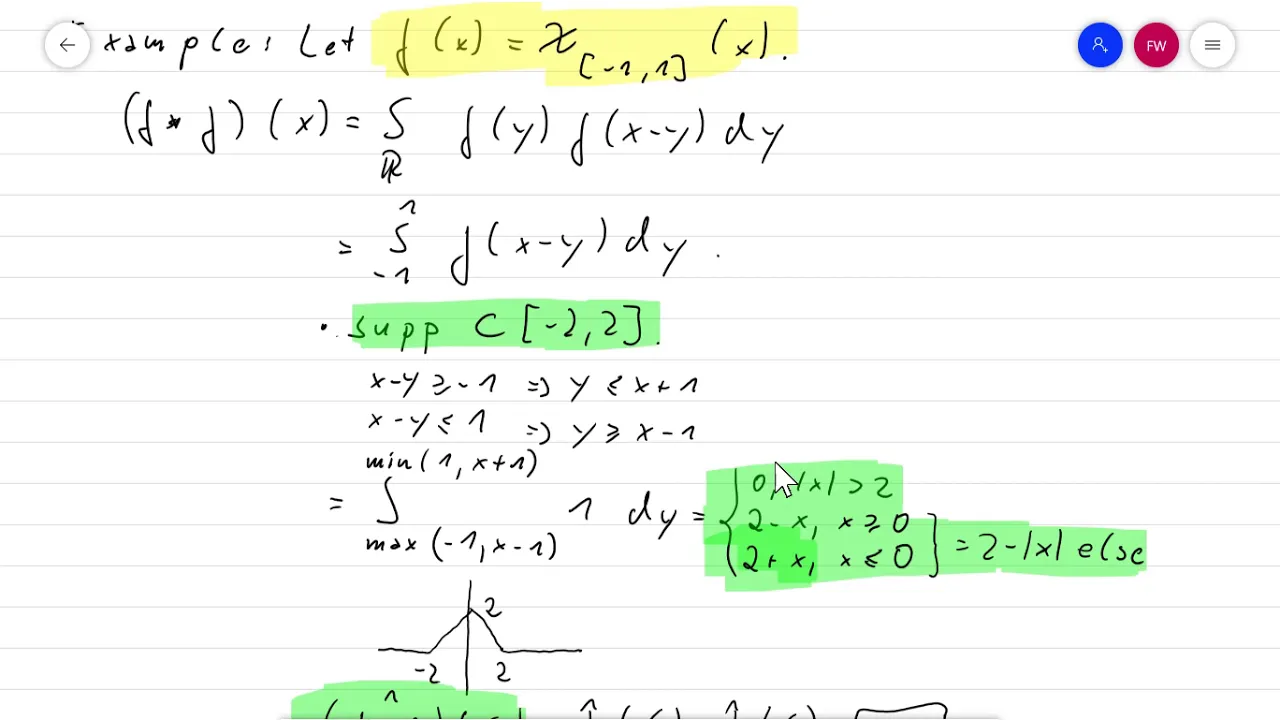 Example: Let f(x) = χ_[-1,1] (x).
FW
(f * f)(x) = ∫_ℝ f(y) f(x-y) dy
= ∫_{-1}^{1} f(x-y) dy.
· supp ⊂ [-2,2].
x-y ≥ -1 => y ≤ x+1
x-y ≤ 1 => y ≥ x-1
= ∫_{max(-1,x-1)}^{min(1,x+1)} 1 dy = { 0, |x| > 2
2-x, x ≥ 0
2+x, x ≤ 0 } = 2-|x| else
2
-2 2